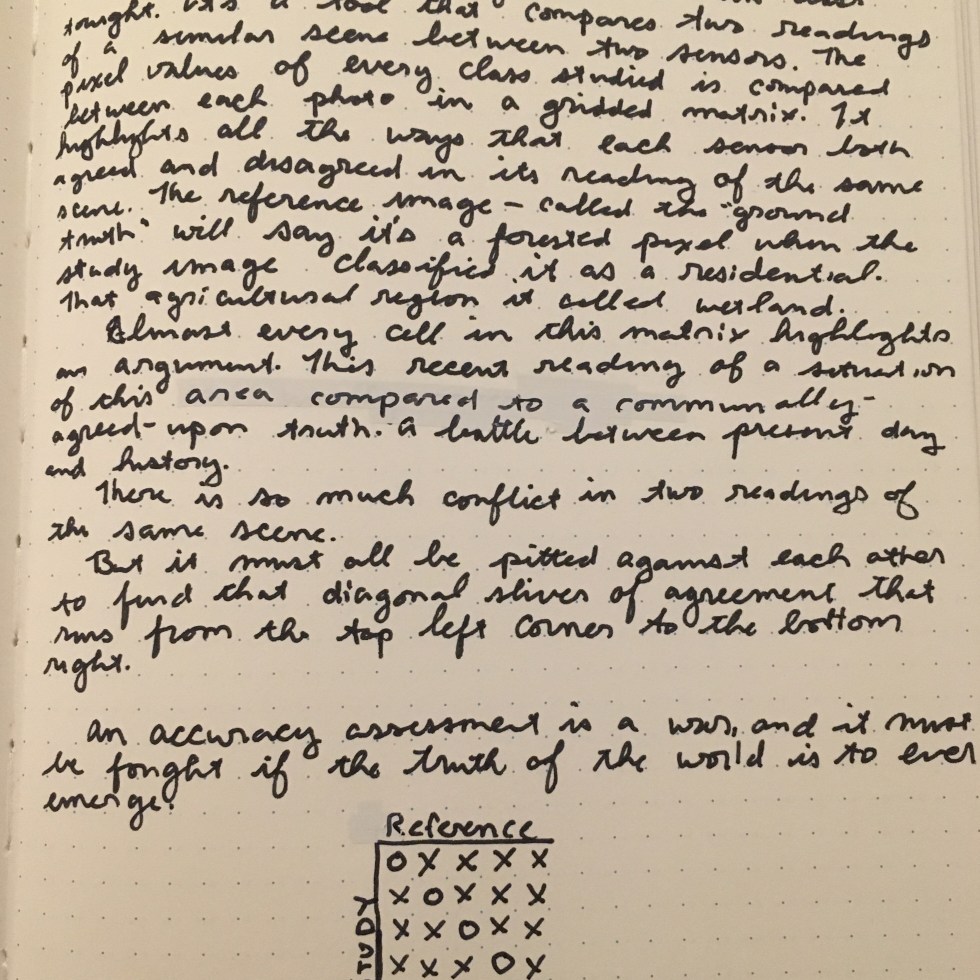 tonight. It's a tool that compares two readings
of a similar scene between two sensors. The
pixel values of every class studied is compared
between each photo in a gridded matrix. It
highlights all the ways that each sensor both
agreed and disagreed in its reading of the same
scene. The reference image - called the "ground
truth" will say it's a forested pixel when the
study image classified it as a residential.
That agricultural region it called wetland.
Almost every cell in this matrix highlights
an argument. This recent reading of a situation
of this area compared to a communally-
agreed-upon truth. A battle between present day
and history.
There is so much conflict in two readings of
the same scene.
But it must all be pitted against each other
to find that diagonal sliver of agreement that
runs from the top left corner to the bottom
right.
An accuracy assessment is a war, and it must
be fought if the truth of the world is to ever
emerge.
Reference
O X X X X
X O X X X
X X O X X
X X X O X
TUDY